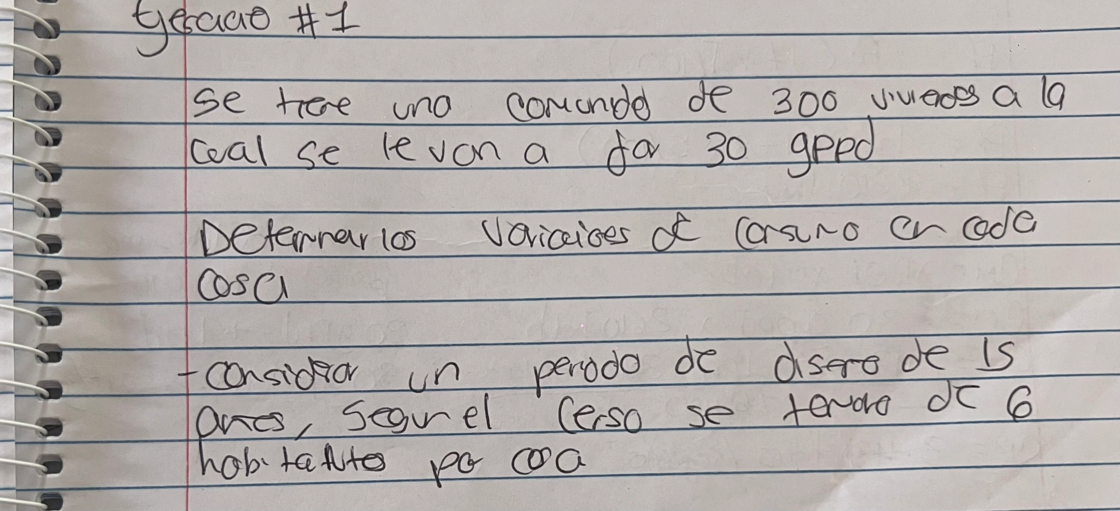 Ejercicio #1
Se tiene una comunidad de 300 viviendas a la
cual se le van a dar 30 gppd
Determinar las variaciones de consumo en cada
casa
- considerar un periodo de diseño de 15
años, según el censo se tendrá de 6
habitantes por casa